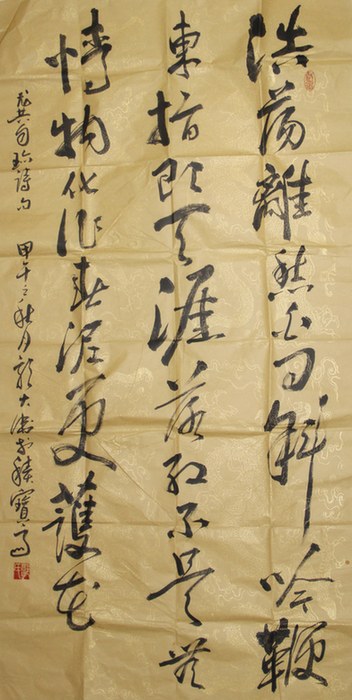 浩蕩離愁白日斜吟鞭
東指即天涯落紅不是無
情物化作春泥更護花
龔自珍詩句 甲午之秋月